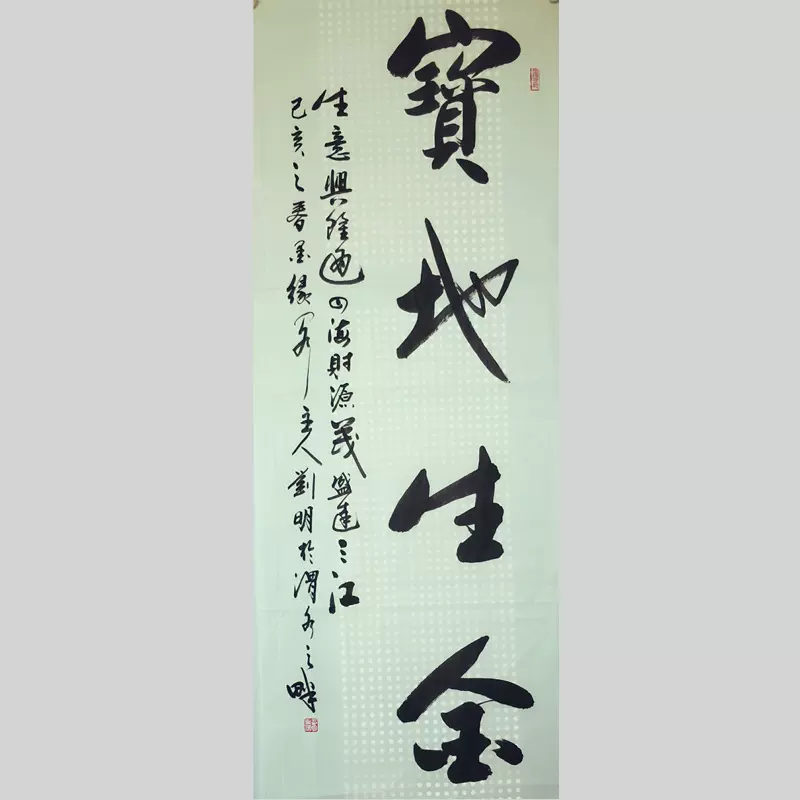 寶地生金
生意興隆通四海財源茂盛達三江
己亥之春墨緣閣主人劉明於渭水之畔